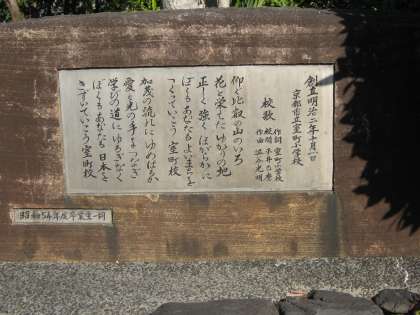 創立明治二年十月一日
京都市立室町小学校
校歌
作詞 室町小学校
作曲
仰ぐ比叡の山のいろ
花と栄えたいからの地
正しく強くほがらかに
ぼくもあなたもよいまちを
つくっていこう 室町校
加茂の流れにゆめはるか
愛と光の手をつなぎ
学びの道にゆるぎなく
ぼくもあなたも日本を
きずいていこう 室町校
昭和54年度卒業生一同